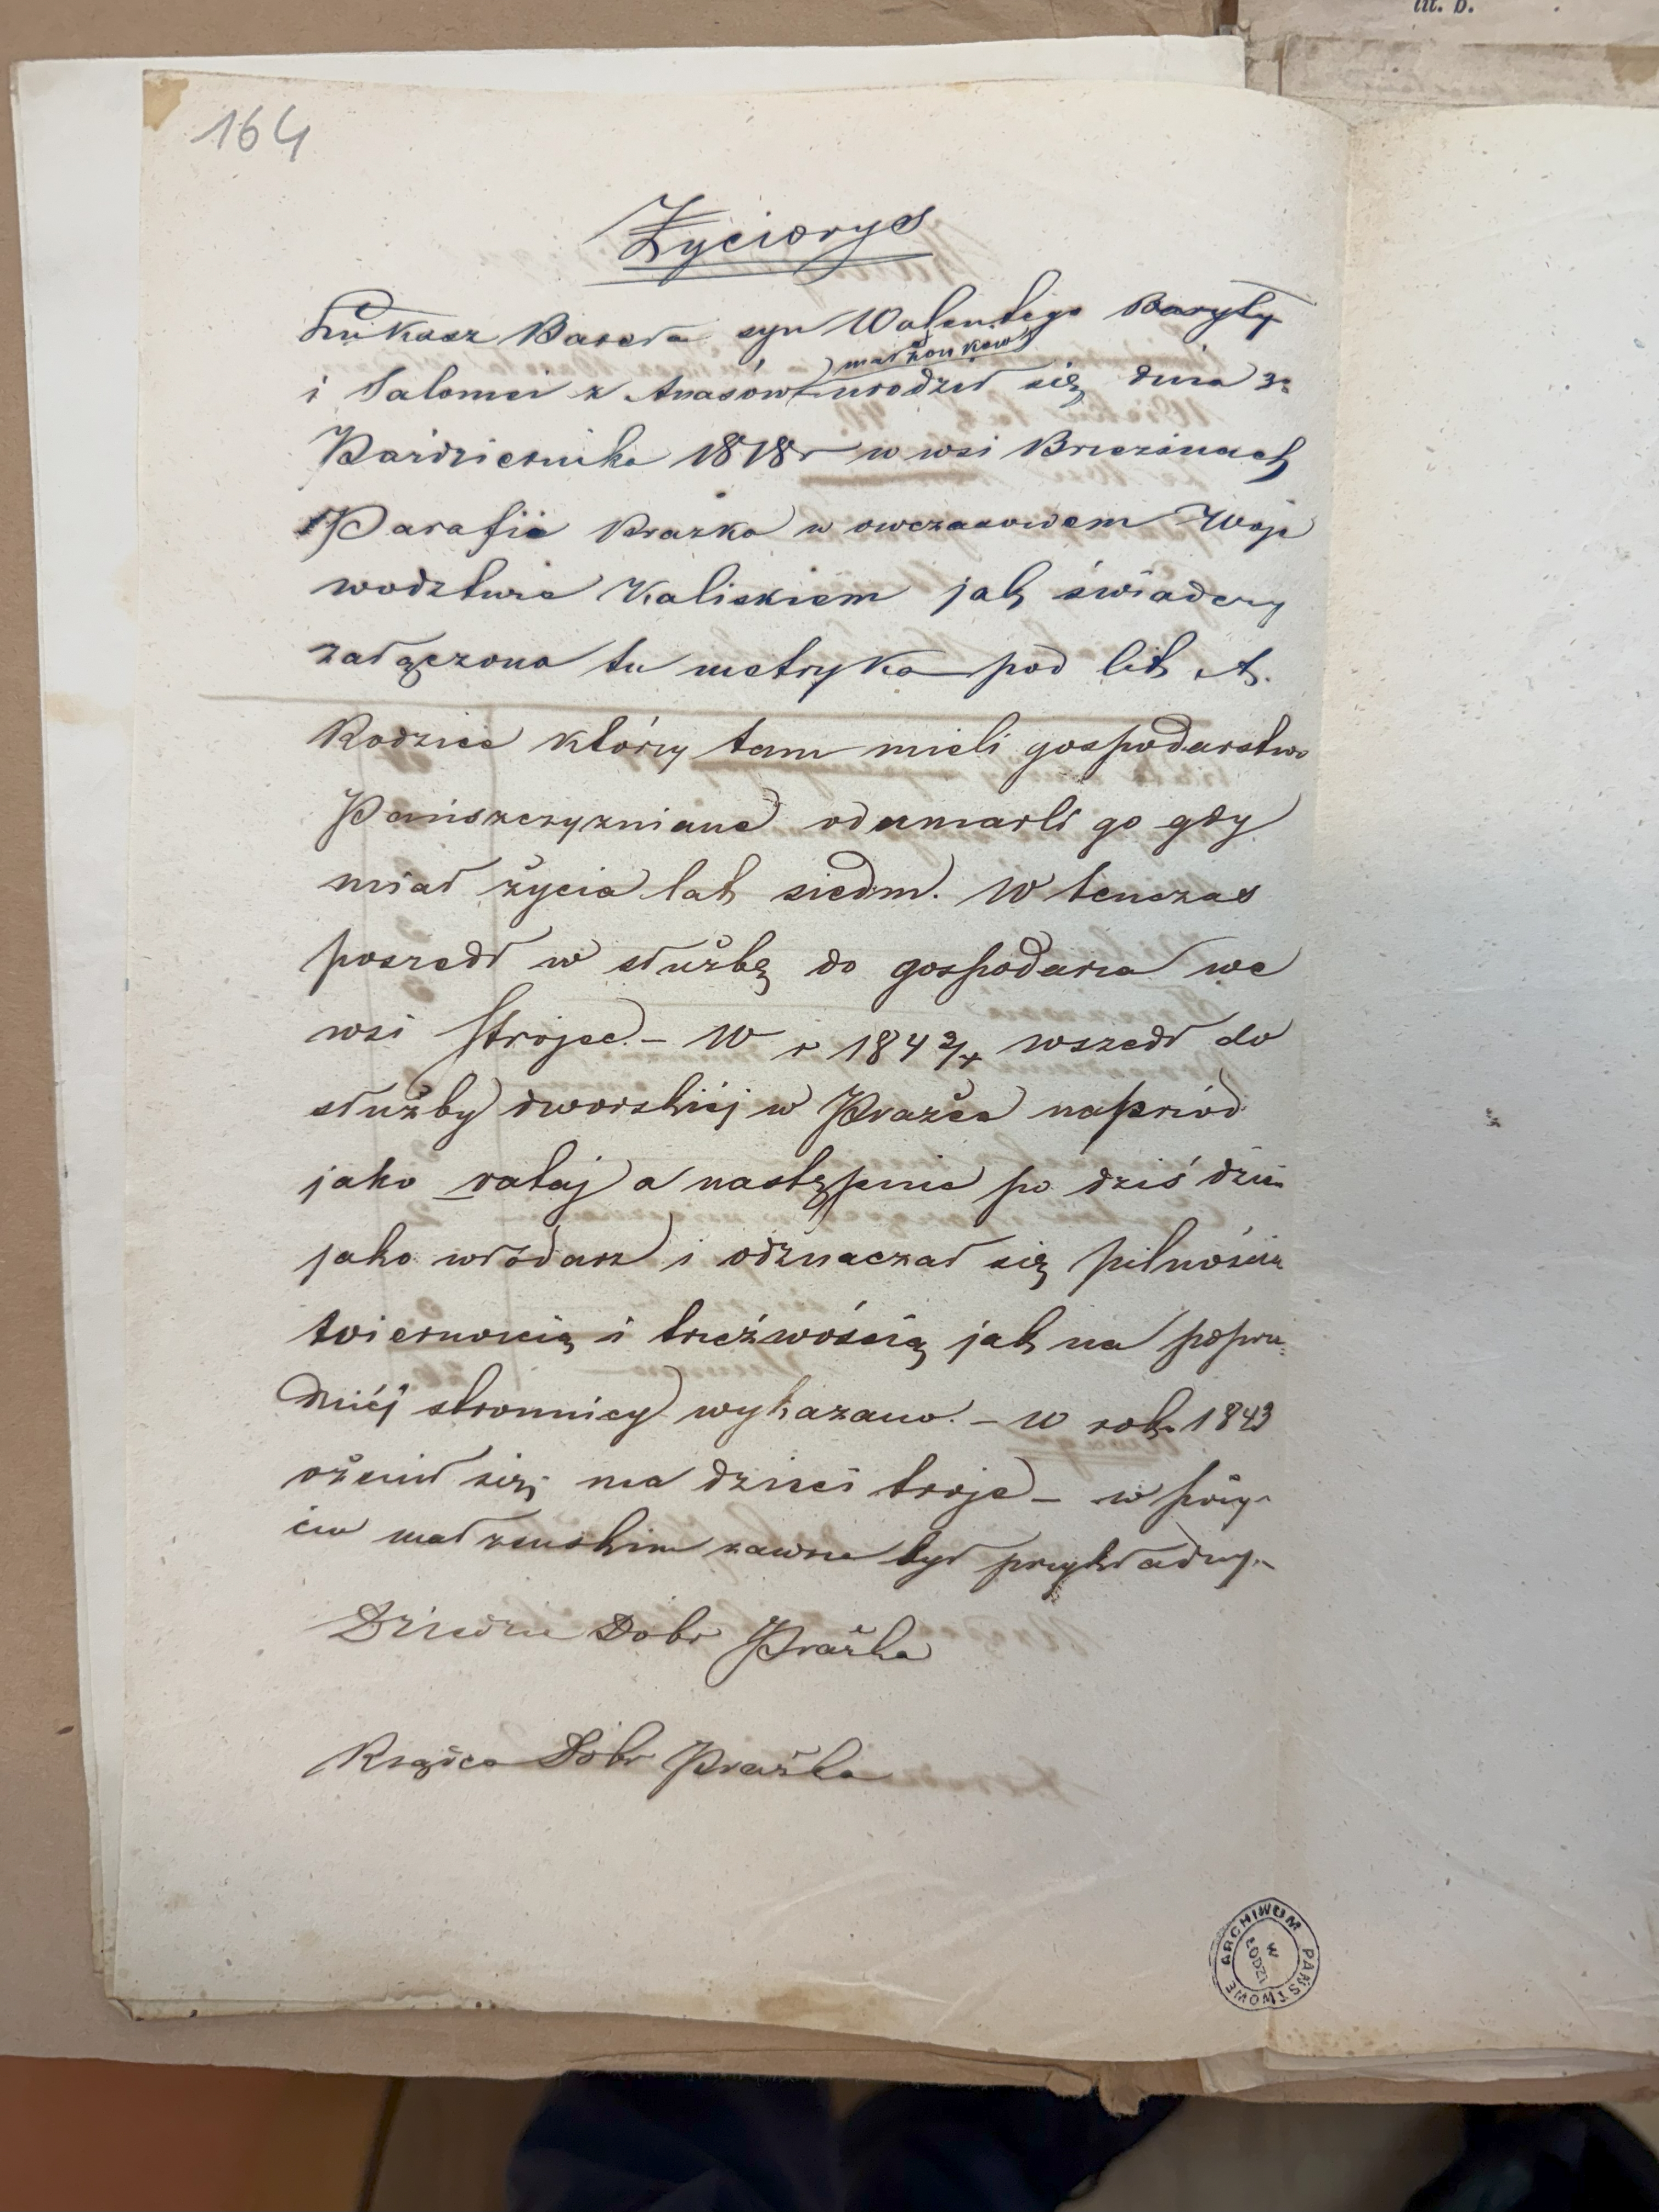 lit. b.
164
Życiorys
Łukasz Bareła syn Walentego Baryły
małżonków
i Salomei z Anasów urodził się dnia 3o
Października 1818 r w wsi Brzezinach
Parafia Prazka w owczasowem Woje
wodztwie Kaliskiem jak świadczy
załączona tu metryka pod lit A.
Rodzice którzy tam mieli gospodarstwo
Pańszczyzniane odumarli go gdy
miał życia lat siedm. W tenczas
poszedł w służbę do gospodarza we
wsi Strojec. – W r 184 2/ wszedł do
służby dworskiéj w Prażce naprzód
jako rataj a następnie po dziś dzień
jako włodarz i odznaczał się pilnością
wiernoscią i trzéźwością jak na poprze
dniéj stronnicy wykazano. – W roku 1843
ożenił się; ma dzieci troje – w poży-
ciu małzeńskim zawsze był przykładny. –
Dziedzic Dóbr Prażka
Rządca Dóbr Prażka
ARCHIWUM PAŃSTWOWE
W ŁODZI